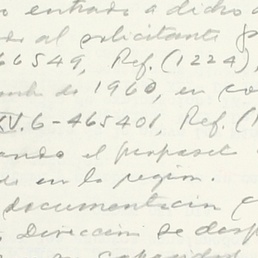 entrado a dicho
al solicitante
66549, Ref. (1224),
de 1960, en
XV.6-465401, Ref. (1
ando el proposel
en la region.
documentacion
Direccion de desp
capacidad